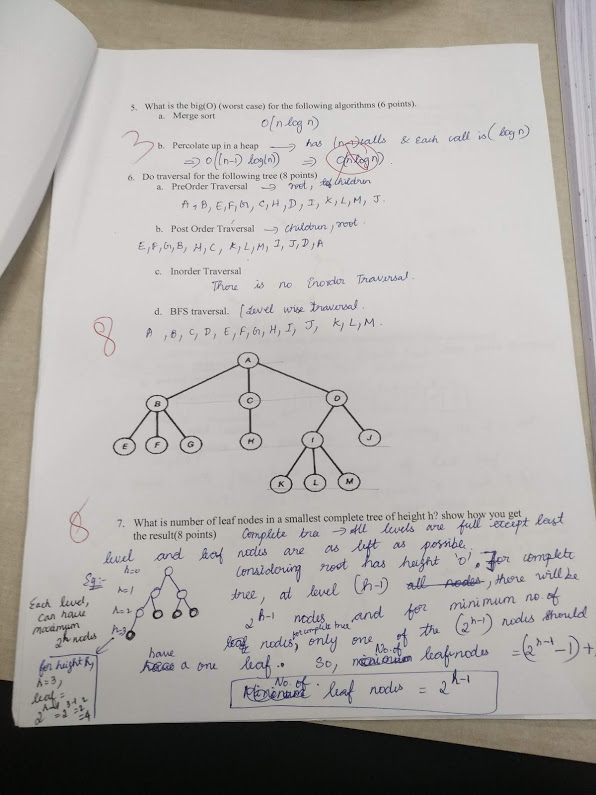 5. What is the big(O) (worst case) for the following algorithms (6 points).
a. Merge sort
O(n log n)
3
b. Percolate up in a heap → has (n-1) calls & each call is ( log n)
⇒ O((n-1) log(n)) ⇒ O(n log n)
6. Do traversal for the following tree (8 points)
a. PreOrder Traversal → root, children
A, B, E, F, G, C, H, D, I, K, L, M, J.
b. Post Order Traversal → children, root.
E, F, G, B, H, C, K, L, M, I, J, D, A
c. Inorder Traversal
There is no Inorder Traversal.
d. BFS traversal. [Level wise traversal.
8
A, B, C, D, E, F, G, H, I, J, K, L, M.
A
B C D
E F G H I J
K L M
8
7. What is number of leaf nodes in a smallest complete tree of height h? show how you get
the result(8 points) Complete tree → All levels are full except least
level and leaf nodes are as left as possible.
Considering root has height '0', For complete
tree, at level (h-1) all nodes, there will be
2^h-1 nodes and for minimum no. of
leaf nodes, for complete tree only one of the (2^h-1) nodes should
have a one leaf. So, No. of leafnodes = (2^h-1 - 1) +
No. of leaf nodes = 2^h-1
Eg:-
h=0
h=1
h=2
h=3
Each level,
can have
maximum
2^h nodes
for height h,
h=3,
leaf =
2^h-1 = 2^3-1 = 2^2
=4